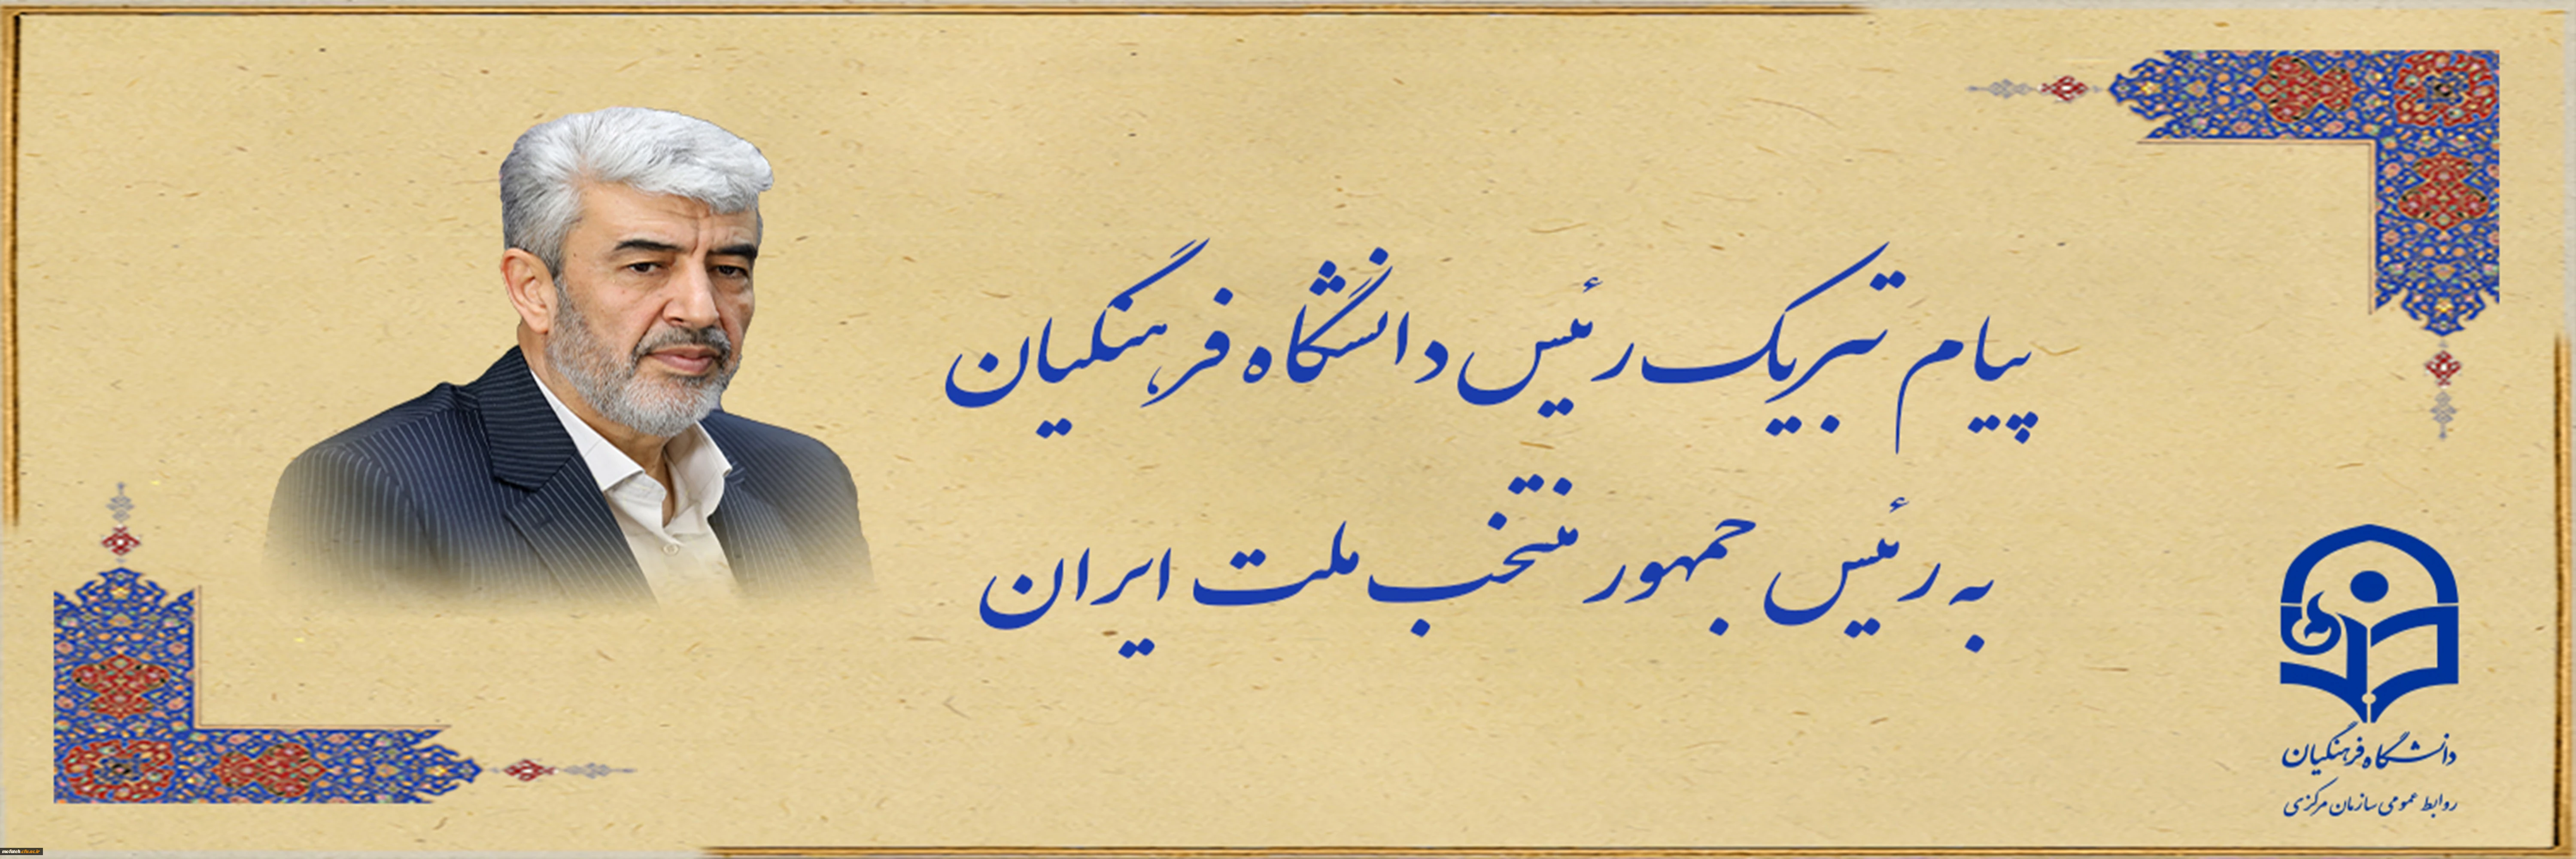 پیام تبریک رئیس دانشگاه فرهنگیان
به رئیس جمهور منتخب ملت ایران
دانشگاه فرهنگیان
روابط عمومی سازمان مرکزی